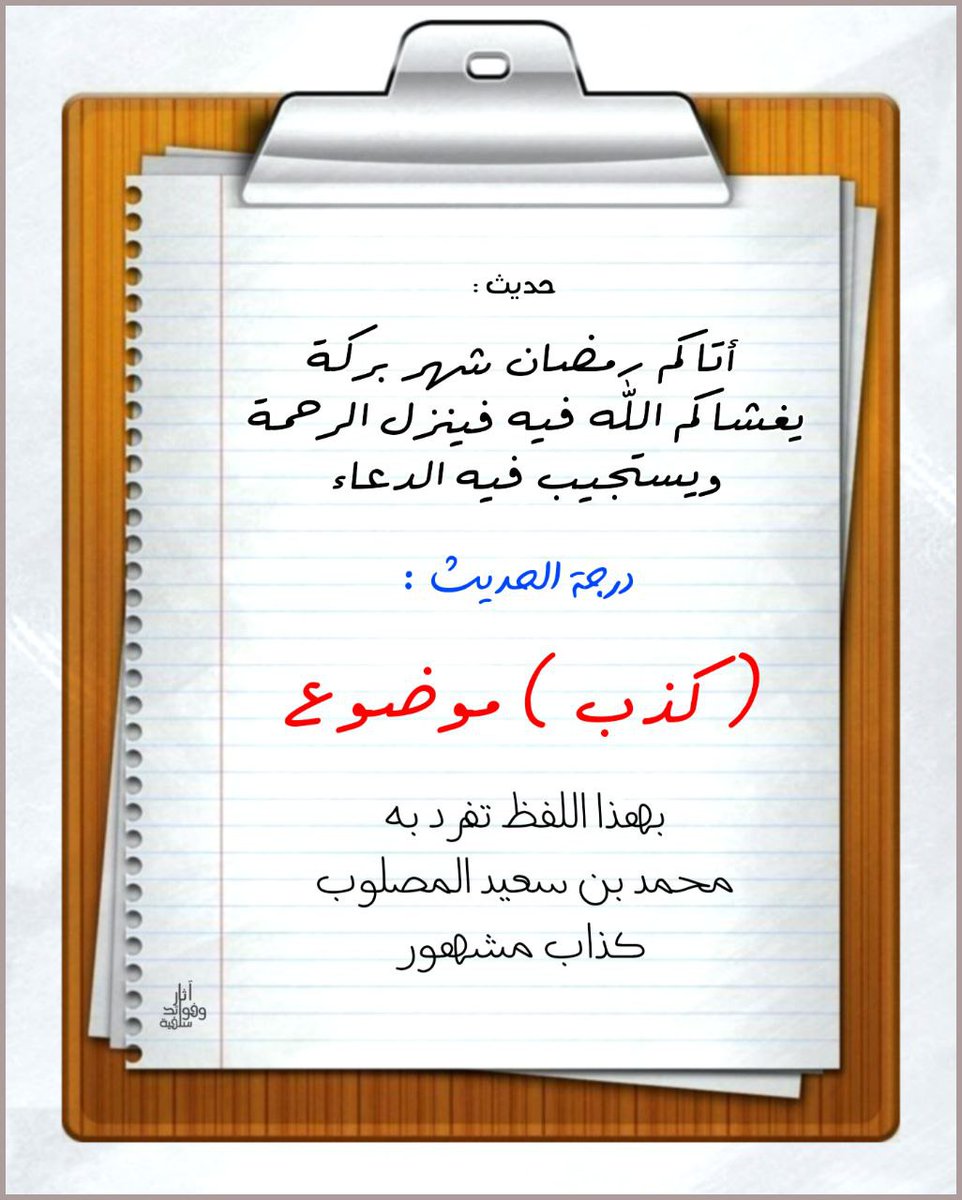 حديث :
أتاكم رمضان شهر بركة
يغشاكم الله فيه فينزل الرحمة
ويستجيب فيه الدعاء
درجة الحديث :
( كذب ) موضوع
بهذا اللفظ تفرد به
محمد بن سعيد المصلوب
كذاب مشهور
آثار
وفوائد
سلفية